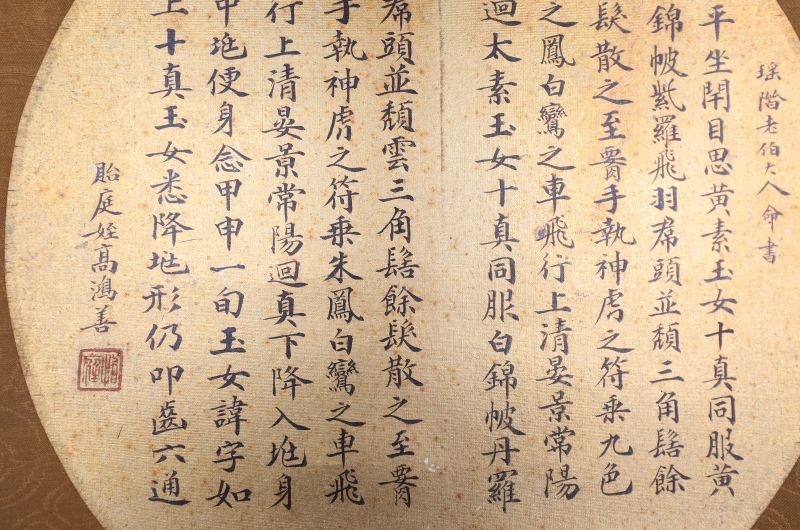 瑤階老伯大人命書
平坐閇目思黃素玉女十真同服黃
錦帔紫羅飛羽帬頭並頹三角髻餘
髮散之至腰手執神虎之符乘九色
之鳳白鸞之車飛行上清晏景常陽
迴太素玉女十真同服白錦帔丹羅
帬頭並頹雲三角髻餘髮散之至腰
手執神虎之符乘朱鳳白鸞之車飛
行上清晏景常陽迴真下降入兆身
中兆便身念甲申一旬玉女諱字如
上十真玉女悉降兆形仍叩齒六通
貽庭姪高鴻善